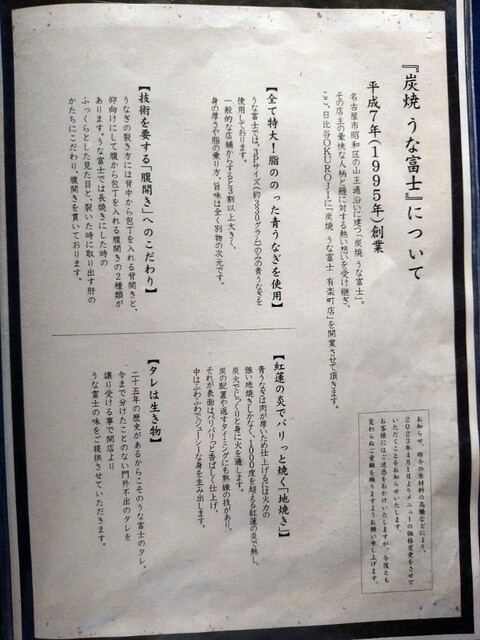 『炭焼 うな富士』について
平成7年(1995年)創業
名古屋市昭和区の山王通沿いに建つ「炭焼 うな富士」。
その店主の豪快な人柄と鰻に対する熱い想いを受け継ぎ、
ここ、日比谷OKUROJIに「炭焼 うな富士 有楽町店」を開業させて頂きます。
【全て特大！脂ののった青うなぎを使用】
うな富士では、3Pサイズ(約330グラム)のみの青うなぎを
使用しております。
一般的な店舗からすると3割以上大きく、
身の厚さや脂の乗り方、旨味は全く別物の次元です。
【技術を要する「腹開き」へのこだわり】
うなぎの裂き方には背中から包丁を入れる背開きと、
仰向けにして腹から包丁を入れる腹開きの2種類が
あります。うな富士では長焼きにした時の
ふっくらとした見た目と、裂いた時に取り出す肝の
かたちにこだわり、腹開きを貫いております。
お知らせ、昨今の原材料の高騰などにより、
2023年4月1日よりメニューの価格変更をさせて
いただくことをお知らせいたします。
お客様にはご迷惑をおかけいたしますが、今後とも
変わらぬご愛顧を賜りますようお願い申し上げます。
【紅蓮の炎でパリっと焼く「地焼き」】
青うなぎは肉が厚いため仕上げるには火力の
強い地焼きしかなく、1000度を超える紅蓮の炎で熱し、
炭火でじっくりと身に火を通します。
炭の配置や返すタイミングにも熟練の技があり、
それが表面はパリパリっと香ばしく仕上げ、
中はふわふわでジューシーな身を生み出します。
【タレは生き物】
二十五年の歴史があるからこそのうな富士のタレ。
今まで分けたことのない門外不出のタレを
譲り受ける事で開店より
うな富士の味をご提供させていただきます。